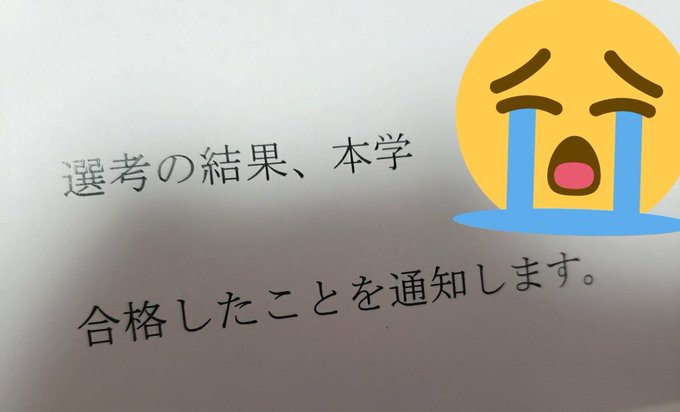 選考の結果、本学
合格したことを通知します。